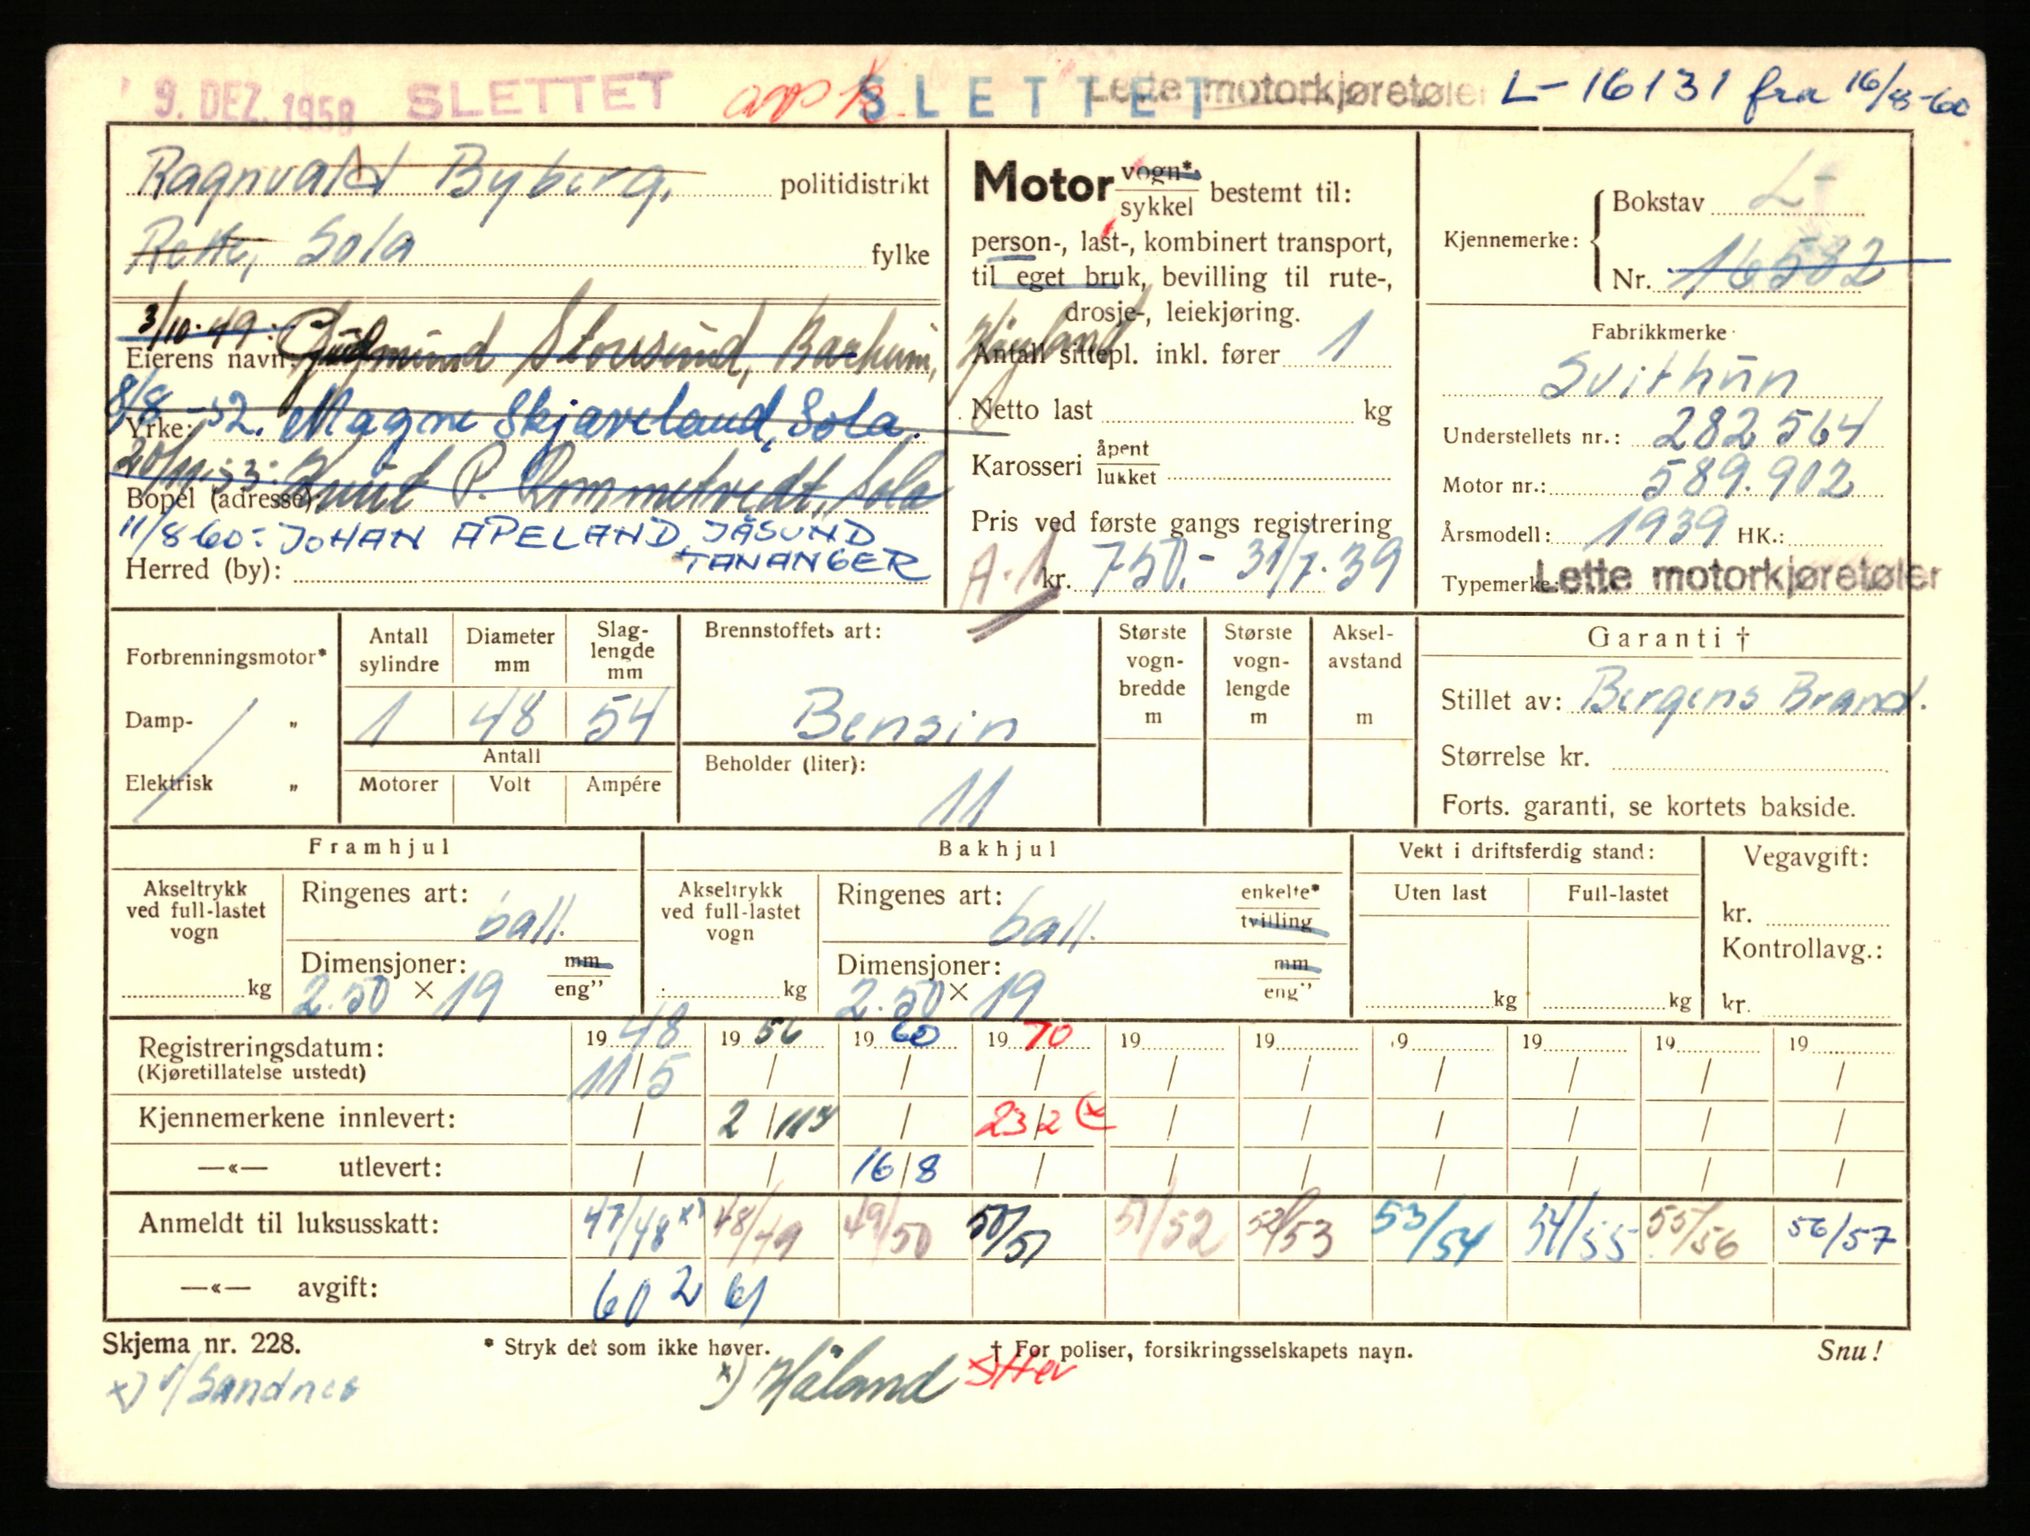 9. DEZ. 1958 SLETTET SLETTET Lette motorkjøretøier L-16131 fra 16/8-60
Ragnvald Byberg, politidistrikt
Sola fylke
3/10-49: Gudmund Storsund, Høyland
Eierens navn:
8/8-52. Magne Skjæveland, Sola.
Yrke:
20/11-53: Knut P. Rommetvedt, Sola
Bopel (adresse):
11/8-60: JOHAN APELAND, JÅSUND
TANANGER
Herred (by):
Motor vogn* sykkel bestemt til:
person-, last-, kombinert transport,
til eget bruk, bevilling til rute-,
drosje-, leiekjøring.
Antall sittepl. inkl. fører 1
Netto last kg
Karosseri åpent lukket
Pris ved første gangs registrering
A.1 kr. 750.- 31/7-39
Kjennemerke: Bokstav L-
Nr. 16582
Fabrikkmerke
Svithun
Understellets nr.: 282564
Motor nr.: 589.902
Årsmodell: 1939 HK.:
Typemerke: Lette motorkjøretøier
Forbrenningsmotor*
Damp- "
Elektrisk "
Antall sylindre Diameter mm Slag-lengde mm
1 48 54
Antall
Motorer Volt Ampére
Brennstoffets art:
Bensin
Beholder (liter):
11
Største vogn-bredde m Største vogn-lengde m Aksel-avstand m
Garanti †
Stillet av: Bergens Brand.
Størrelse kr.
Forts. garanti, se kortets bakside.
Framhjul
Akseltrykk ved full-lastet vogn
kg
Ringenes art: ball.
Dimensjoner: mm
2.50 × 19 eng"
Bakhjul
Akseltrykk ved full-lastet vogn
kg
Ringenes art: ball. enkelte* tvilling
Dimensjoner: mm
2.50 × 19 eng"
Vekt i driftsferdig stand:
Uten last Full-lastet
kg kg
Vegavgift:
kr.
Kontrollavg.:
kr.
Registreringsdatum: 1948 1956 1960 1970 19 19 19 19 19 19
(Kjøretillatelse utstedt) 11/5 / / / / / / / / /
Kjennemerkene innlevert: / 2/11 / 23/2 / / / / / /
—«— utlevert: / / 16/8 / / / / / / /
Anmeldt til luksusskatt: 47/48 x) 48/49 49/50 50/51 51/52 52/53 53/54 54/55 55/56 56/57
—«— avgift: 60 2 61
Skjema nr. 228. * Stryk det som ikke høver. † For poliser, forsikringsselskapets navn. Snu!
x) v/Sandnes x) Håland